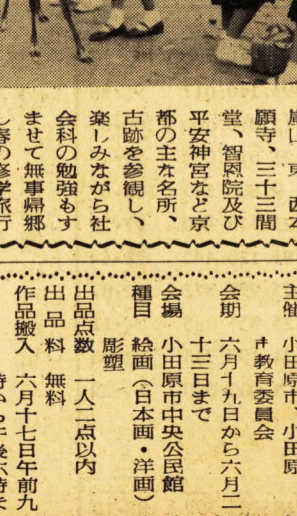 願寺、三十三間
堂、智恩院及び
平安神宮など京
都の主な名所、
古跡を参観し、
楽しみながら社
会科の勉強もす
ませて無事帰郷
主催 小田原市、小田原
市教育委員会
会期 六月十九日から六月二
十三日まで
会場 小田原市中央公民館
種目 絵画(日本画・洋画)
彫塑
出品点数 一人二点以内
出品料 無料
作品搬入 六月十七日午前九